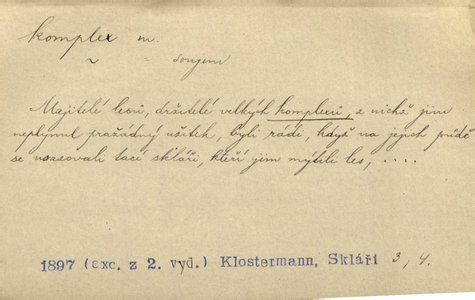 komplex m.
~ = soujem
Majitelé lesů, držitelé velkých komplexů, z nichž jim
neplynul pražádný užitek, byli rádi, když na jejich půdě
se usazovali tací skláři, kteří jim mýtili les, ....
1897 (exc. z 2. vyd.) Klostermann, Skláři 3, 4.